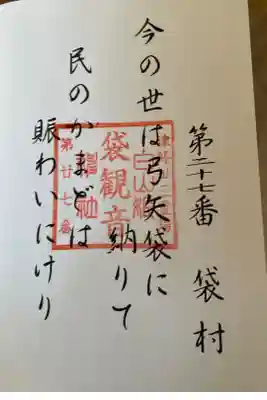 第二十七番　袋村
今の世は弓矢袋に
納りて
民のかまどは
賑わいにけり
袋観音
第廿七番